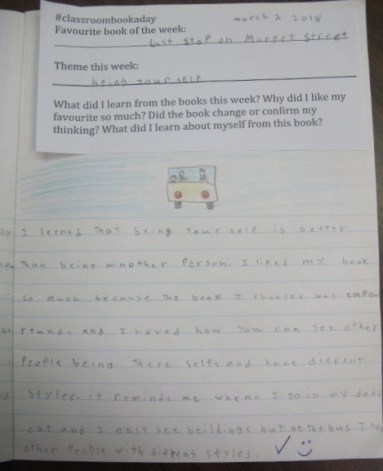 #classroombookaday
march 2 2018
Favourite book of the week:
Last Stop on Market Street
Theme this week:
being your self
What did I learn from the books this week? Why did I like my
favourite so much? Did the book change or confirm my
thinking? What did I learn about myself from this book?
I lerned that being your self is better
Than being another Person. I liked my book
so much because the book I was
and I loved how you can see other
People being there selfs and have
Styles. it reminds me when I go in my dads
and I see but on the bus I
other People with styles.